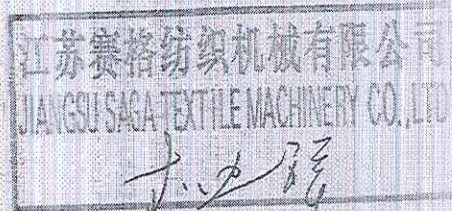 江苏赛格纺织机械有限公司
JIANGSU SAGA TEXTILE MACHINERY CO.,LTD